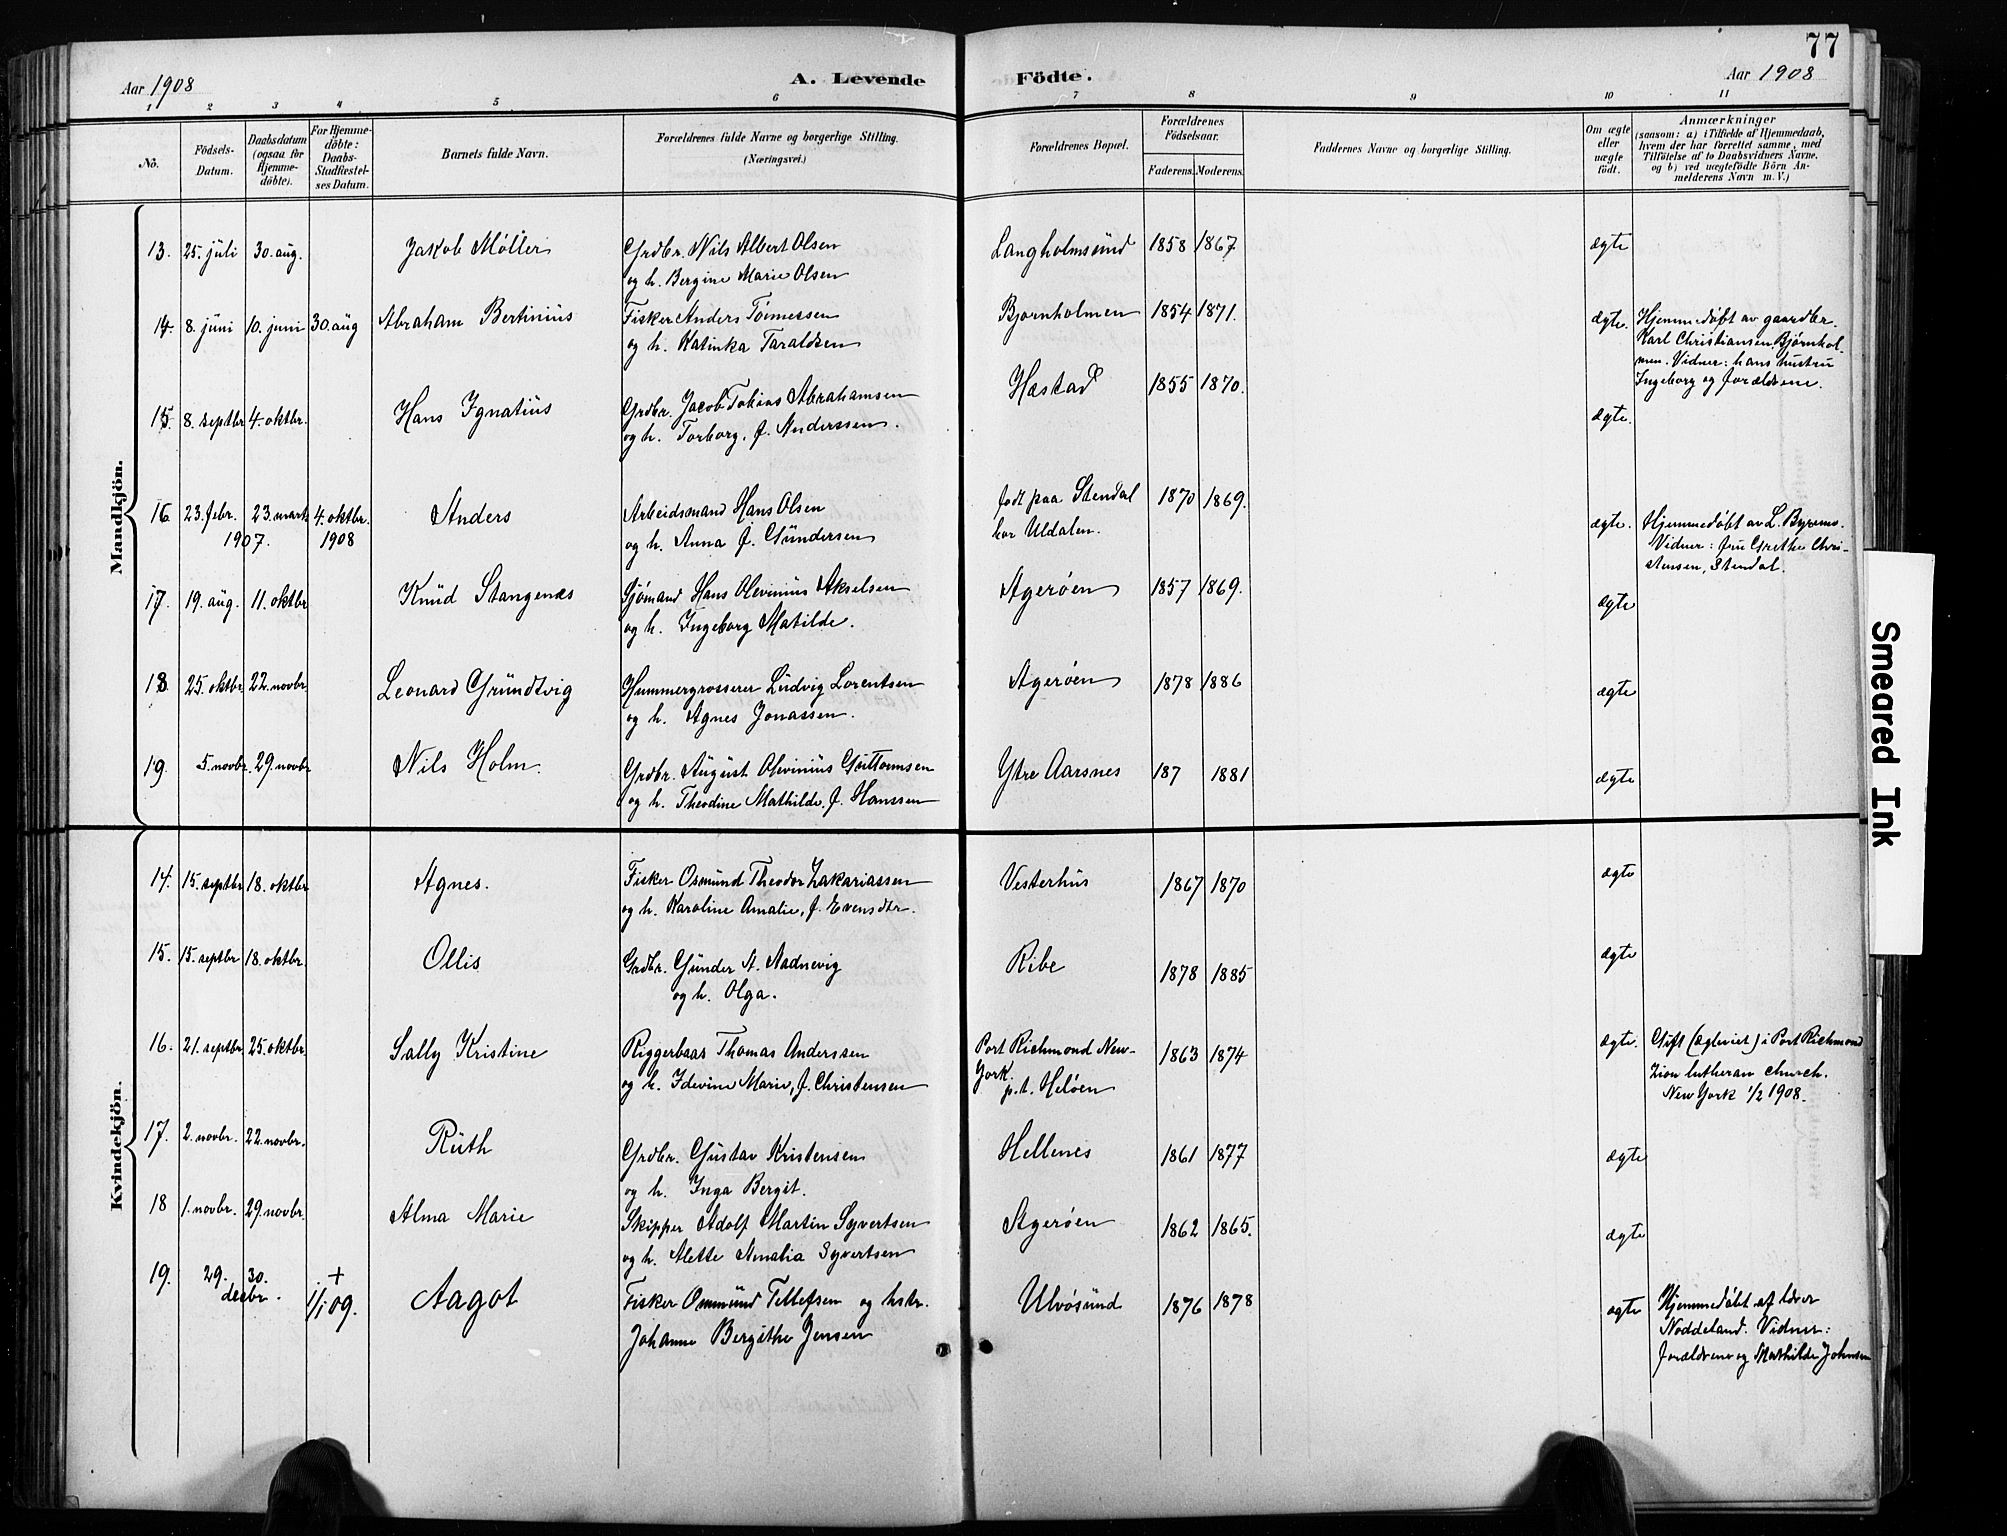 77
Aar 1908
A. Levende Födte.
Aar 1908
1 2 3 4 5 6 7 8 9 10 11
No.
Födsels-
Datum.
Daabsdatum
(ogsaa for
Hjemme-
döbte).
For Hjemme-
döbte:
Daabs-
Stadfæstel-
ses Datum.
Barnets fulde Navn.
Forældrenes fulde Navne og borgerlige Stilling.
(Næringsvei.)
Forældrenes Bopæl.
Forældrenes
Födselsaar.
Faderens. Moderens.
Faddernes Navne og borgerlige Stilling.
Om ægte
eller
uægte
födt.
Anmærkninger
(saasom: a) i Tilfælde af Hjemmedaab,
hvem der har forrettet samme, med
Tilföielse af to Daabsvidners Navne,
og b) ved uægtefödte Börn An-
melderens Navn m. V.)
Mandkjön.
13. 25. juli 30. aug. Jakob Møller Grdbr. Nils Albert Olsen Langholmsund 1858 1867 ægte
og h. Bergine Marie Olsen
14. 8. juni 10. juni 30. aug Abraham Bertinius Fisker Anders Tönnessen Bjornholmen 1854 1871. ægte. Hjemmedøbt av gaardbr.
og h. Katinka Taraldsen Karl Christiansen, Bjørnhol-
men. Vidner: hans hustru
Ingeborg og forældrene.
15. 8. septbr 4. oktbr. Hans Ignatius Grdbr. Jacob Tobias Abrahamsen Hæstad 1855 1870. ægte.
og h. Torborg, f. Anderssen.
16. 23. febr. 23. mars 4. oktbr. Anders Arbeidsmand Hans Olsen født paa Stendal 1870 1869. ægte. Hjemmedøbt av L. Byremo.
1907. 1908 og h. Anna f. Gundersen bor Uldalen. Vidner: fru Grethe Chri-
stensen, Stendal.
17. 19. aug. 11. oktbr Knud Stangenes Sjömand Hans Olevinius Akselsen Agerøen 1857 1869. ægte
og h. Ingeborg Matilde.
18. 25. oktbr 22. novbr Leonard Grundtvig Hummergrosserer Ludvig Lorentsen Agerøen 1878 1886 ægte
og h. Agnes Jonassen.
19. 5. novbr. 29. novbr Nils Holm. Grdbr. August Olevinius Guttormsen Ytre Aarsnes 187 1881 ægte
og h. Theodine Mathilde, f. Hanssen
Kvindekjön.
14. 15. septbr 18. oktbr Agnes. Fisker Osmund Theodor Zakariassen Vesterhus 1867 1870 ægte
og h. Karoline Amalie, f. Evensdtr.
15. 15. septbr 18. oktbr. Ollis Grdbr. Gunder A. Aadnevig Ribe 1878 1885 ægte
og h. Olga.
16. 21. septbr 25. oktbr. Sally Kristine Riggerbaas Thomas Anderssen Port Richmond New- 1863 1874 ægte. Gift (ægteviet) i Port Richmond
og h. Idevine Marie, f. Christensen York. Zion lutheran church.
p. t. Heløen New York 1/2 1908.
17. 2. novbr. 22. novbr. Ruth Grdbr. Gustav Kristensen Hellenes 1861 1877 ægte
og h. Inga Bergit.
18 1. novbr. 29. novbr. Alma Marie Skipper Adolf Martin Syvertsen Agerøen 1862 1865. ægte
og h. Alette Amalia Syvertsen
19. 29. 30. + Aagot Fisker Ommund Tellefsen og hstr. Ulvösund 1876 1878 ægte Hjemmedøbt af lærer
decbr. 1/1 09. Johanne Bergithe Jensen Noddeland. Vidner:
forældrene og Mathilde Johnsen
Smeared Ink